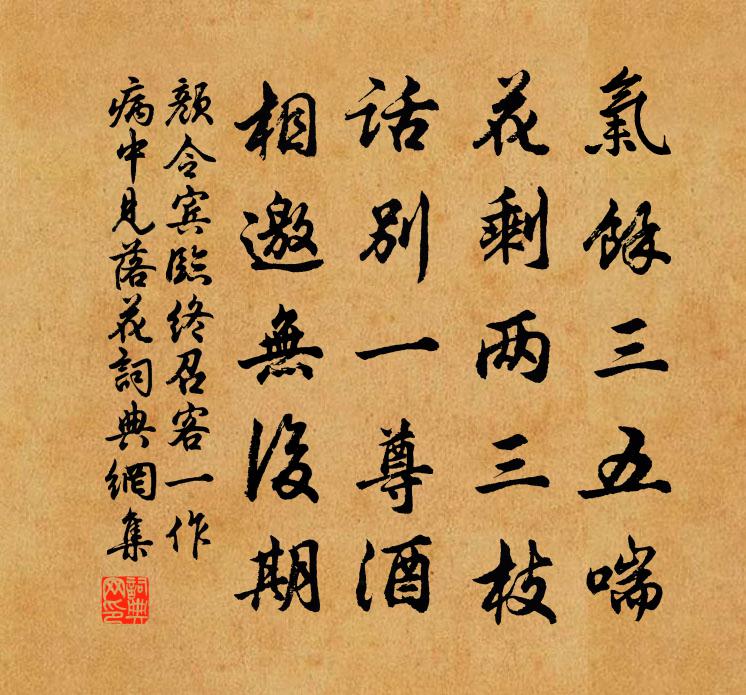 氣餘三五喘
花剩两三枝
話别一尊酒
相邀無後期
顏令賓臨終召客一作
病中見落花詞典網集
詞典網印